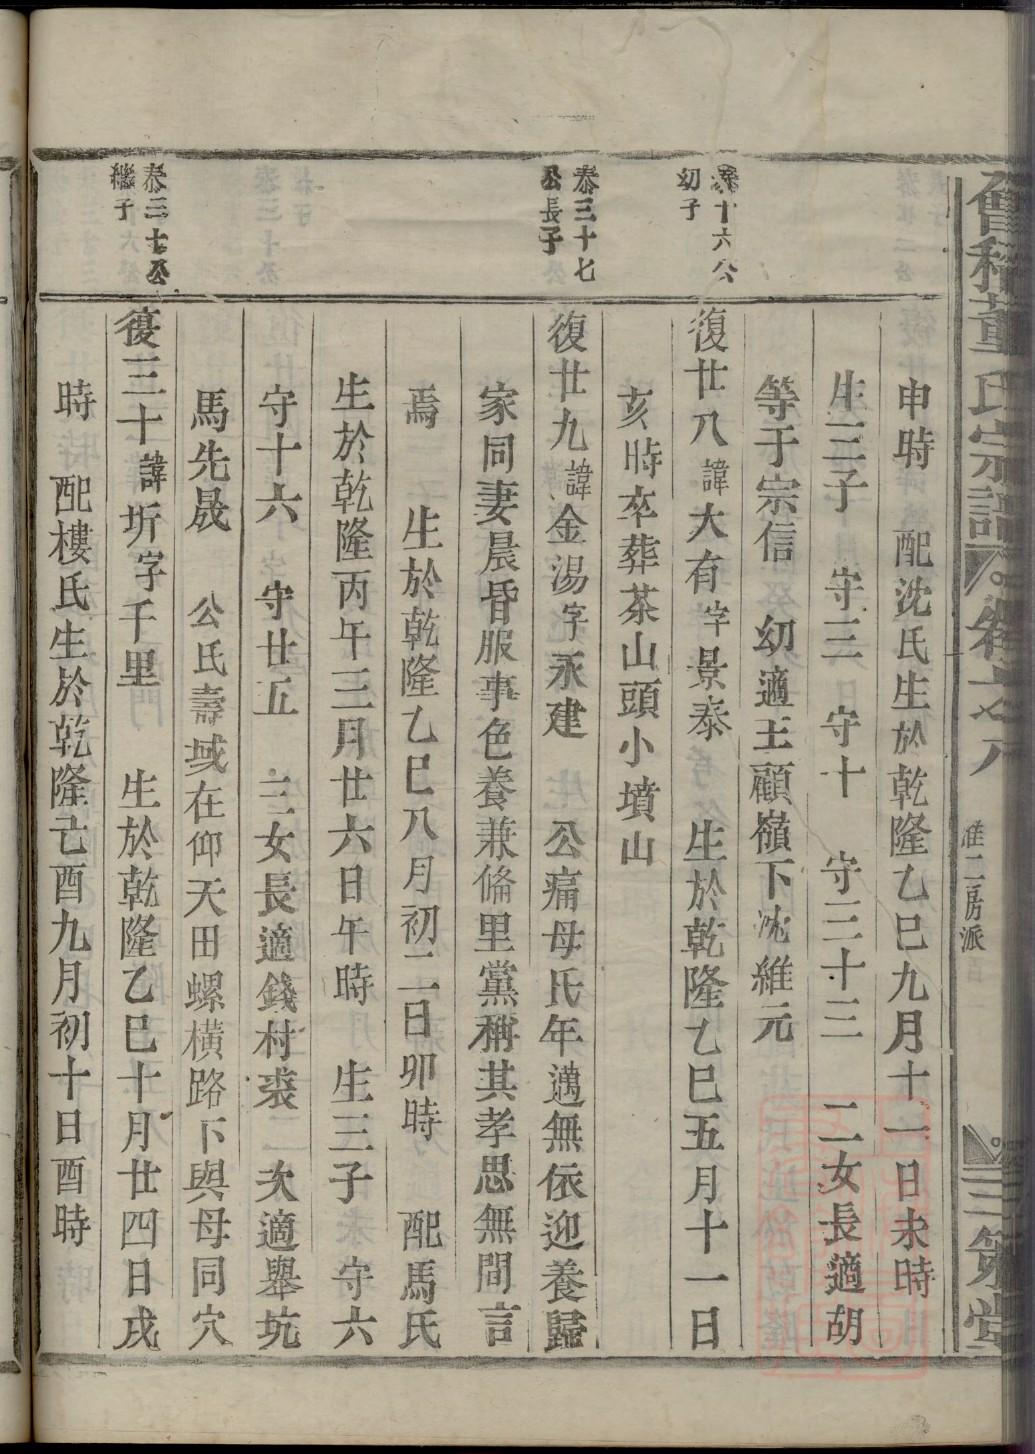 會稽董氏宗譜
卷之八
維二房派
三策堂
申時 配沈氏生於乾隆乙巳九月十一日未時
生三子 守三 守十 守三十三 二女長適胡
等于宗信 幼適王顧嶺下沈維元
泰十六公
幼子
復廿八諱大有字景泰 生於乾隆乙巳五月十一日
亥時卒葬茶山頭小墳山
泰三十七
公長子
復廿九諱金湯字永建 公痛母氏年邁無依迎養歸
家同妻晨昏服事色養兼備里黨稱其孝思無間言
焉 生於乾隆乙巳八月初二日卯時 配馬氏
生於乾隆丙午三月廿六日午時 生三子 守六
守十六 守廿五 三女長適錢村裘 次適舉坑
馬先晟 公氏壽域在仰天田螺橫路下與母同穴
泰三十七公
繼子
復三十諱圻字千里 生於乾隆乙巳十月廿四日戌
時 配樓氏生於乾隆己酉九月初十日酉時